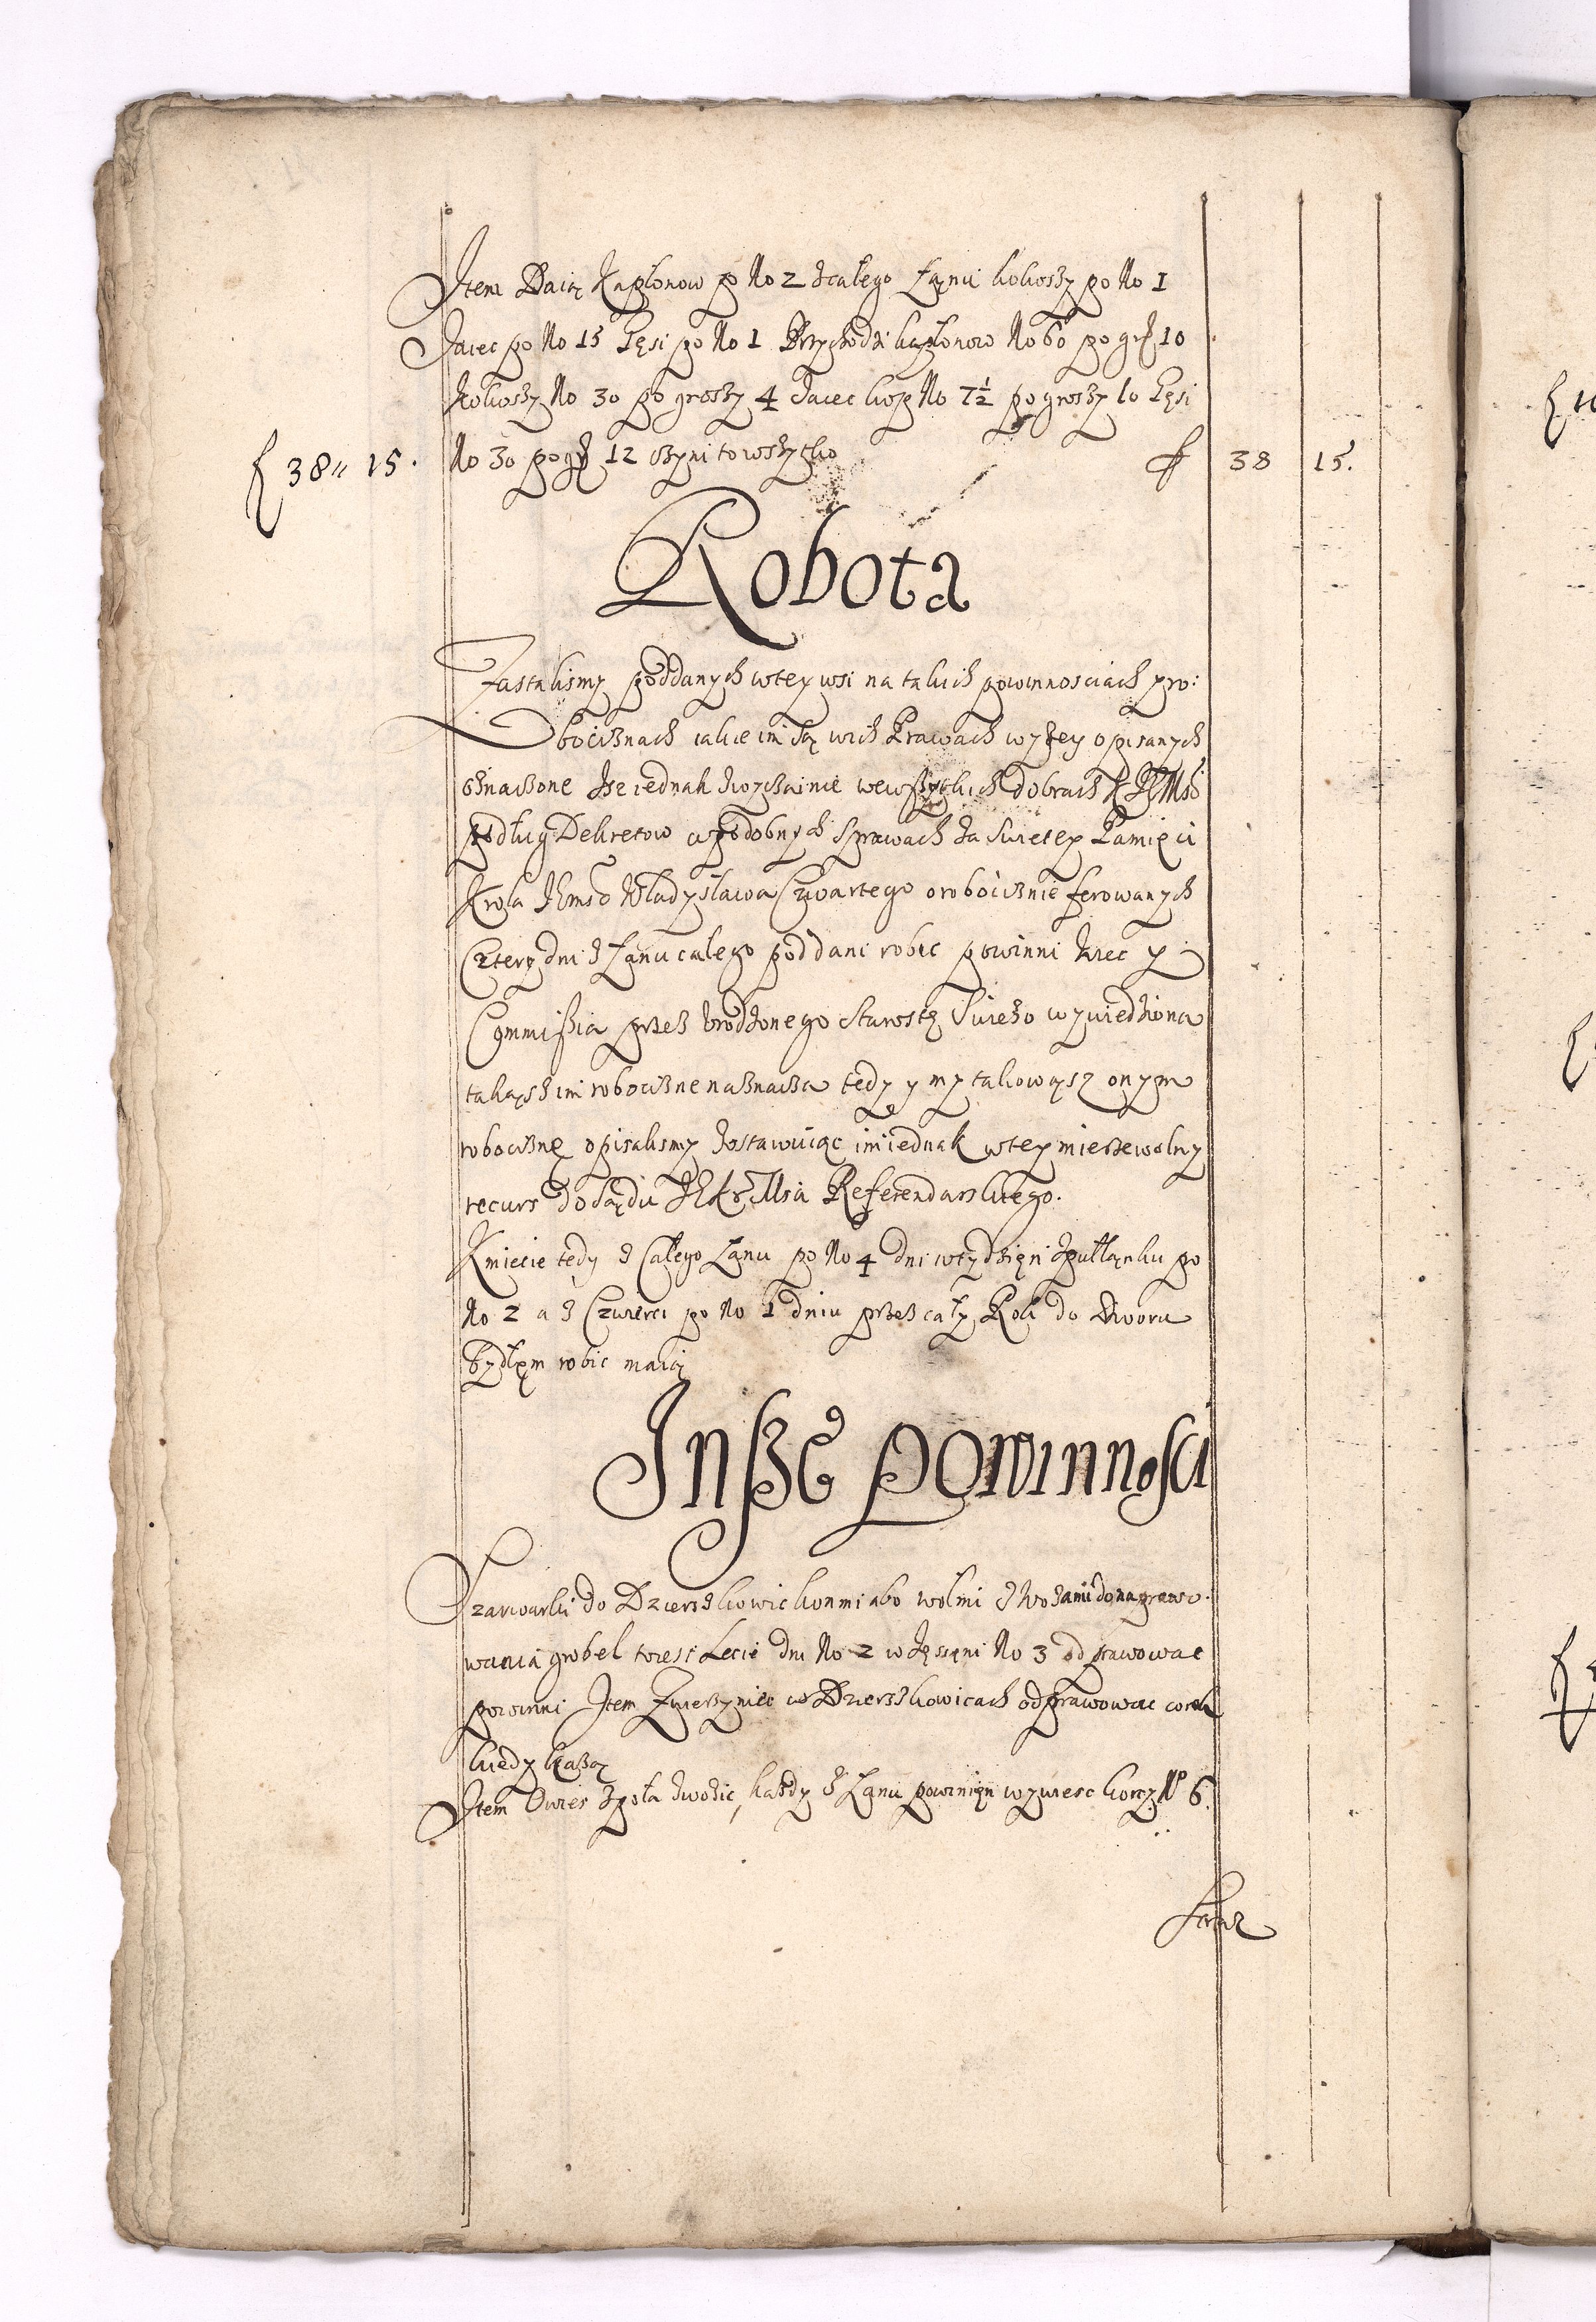 Item Daią Kapłonow po No 2 zcałego Łanu kokoszy po No 1
Jaiec po No 15 Gęsi po No 1 Przychodzi kapłonow No 60 po gr 10
Kokoszy No 30 po groszy 4 Jaiec kop No 7½ po groszy 10 Gęsi
No 30 po gr 12 czyni to wszytko f 38 15.
f 38 " 15.
Robota
Zastalismy poddanych wtey wsi na takich powinnosciach y ro:
bociznach iakie im są wich Prawach wyżey opisanych
oznaczone Ze iednak zwyczainie wewszytkich dobrach K J Mści
podług Dekretow w podobnych sprawach za Swietey Pamięci
Krola Jemsci Władysława Czwartego o robociznie ferowanych
Cztery dni z Łanu całego poddani robic powinni więc y
Commissia przez Urodzonego Starostę Swiezo wywiedziona
takąsz im robociznę naznacza tedy y my takowąsz onym
robociznę opisalismy Zostawuiąc im iednak wtey mierze wolny
recurs do Sądu JKr Msci Referendarskiego.
Kmiecie tedy z Całego Łanu po No 4 dni wtydzięn Zpułłanku po
No 2 a z Czwierci po No 1 dniu przez cały Rok do Dworu
Bydłem robic maią
Insze Powinnosci
Szarwarki do Dzierzkowic konmi abo wołmi z Wozami do naprawo:
wania grobel tresi Lecie dni No 2 w Jęssęni No 3 odprawowac
powinni Item Zwierzyniec w Dzierzkowicach odprawowac
kiedy każą
Item Owies zpola zwozic, każdy z Łanu powinięn wywiesc korcy No 6.